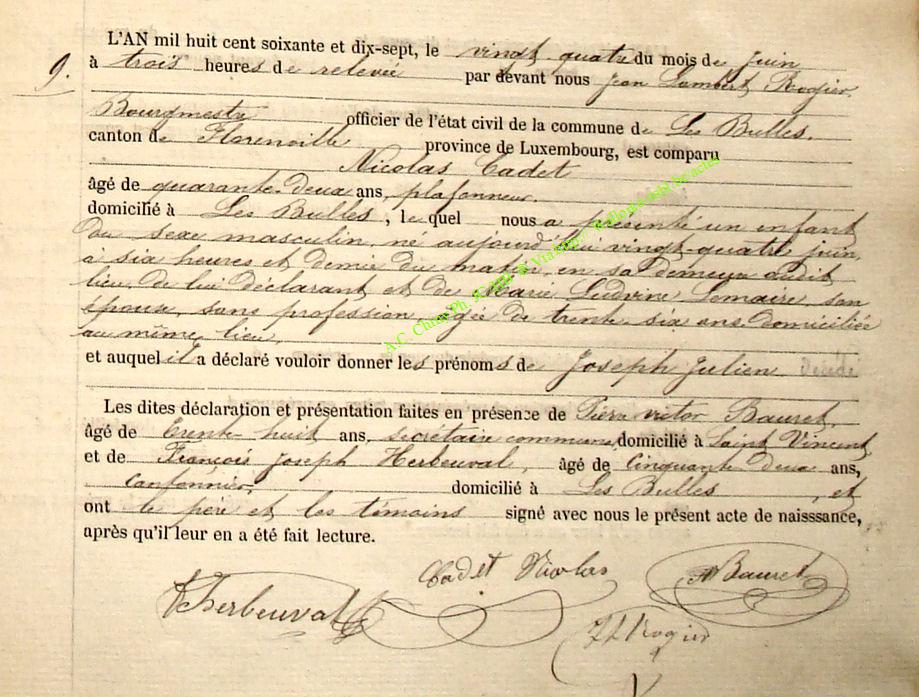 9.
L'AN mil huit cent soixante et dix-sept, le vingt quatre du mois de juin
à trois heures de relevée par devant nous Jean Lambert Rogier,
Bourgmestre officier de l'état civil de la commune de Les Bulles,
canton de Florenville province de Luxembourg, est comparu
Nicolas Cadet
âgé de quarante-deux ans, plafonneur,
domicilié à Les Bulles, lequel nous a présenté un enfant
du sexe masculin, né aujourd'hui vingt-quatre juin,
à six heures et demie du matin, en sa demeure audit
lieu, de lui déclarant et de Marie Ludvine Lemaire, son
épouse, sans profession, agée de trente-six ans, domiciliée
au même lieu,
et auquel il a déclaré vouloir donner les prénoms de Joseph Julien
Les dites déclaration et présentation faites en présence de Pierre victor Bauret,
âgé de trente-huit ans, secrétaire communal, domicilié à Saint Vincent
et de François Joseph Herbeuval, âgé de cinquante deux ans,
cantonnier, domicilié à Les Bulles, et
ont le père et les témoins signé avec nous le présent acte de naisssance,
après qu'il leur en a été fait lecture.
Cadet Nicolas
Bauret
Herbeuval
JL Rogier